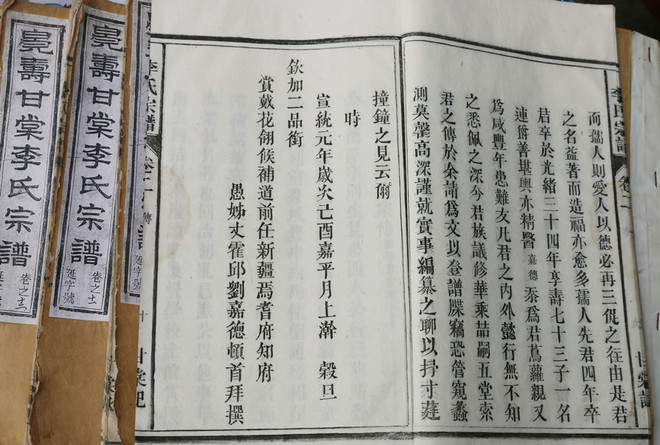 李氏宗譜
甘棠記
而孺人則愛人以德必再三俔之往由是君
之名益著而造福亦愈多孺人先君四年卒
君卒於光緒三十四年享壽七十三子一名
連衡善堪輿亦精醫嘉德忝爲君蔦蘿親又
爲咸豐年患難友凡君之內外懿行無不知
之悉佩之深兮君族議修華乘喆嗣五堂索
君之傳於余請爲文以登譜牒竊恐管窺蠡
測莫罄高深謹就實事編纂之聊以抒寸莛
撞鐘之見云爾
時
宣統元年歲次己酉嘉平月上澣 穀旦
欽加二品銜
賞戴花翎候補道前任新疆焉耆府知府
愚姊丈霍邱劉嘉德頓首拜撰
李氏宗譜
甘棠記
譜
字號
壽甘棠李氏宗譜
卷之
字號
壽甘棠李氏宗譜
卷之
字號